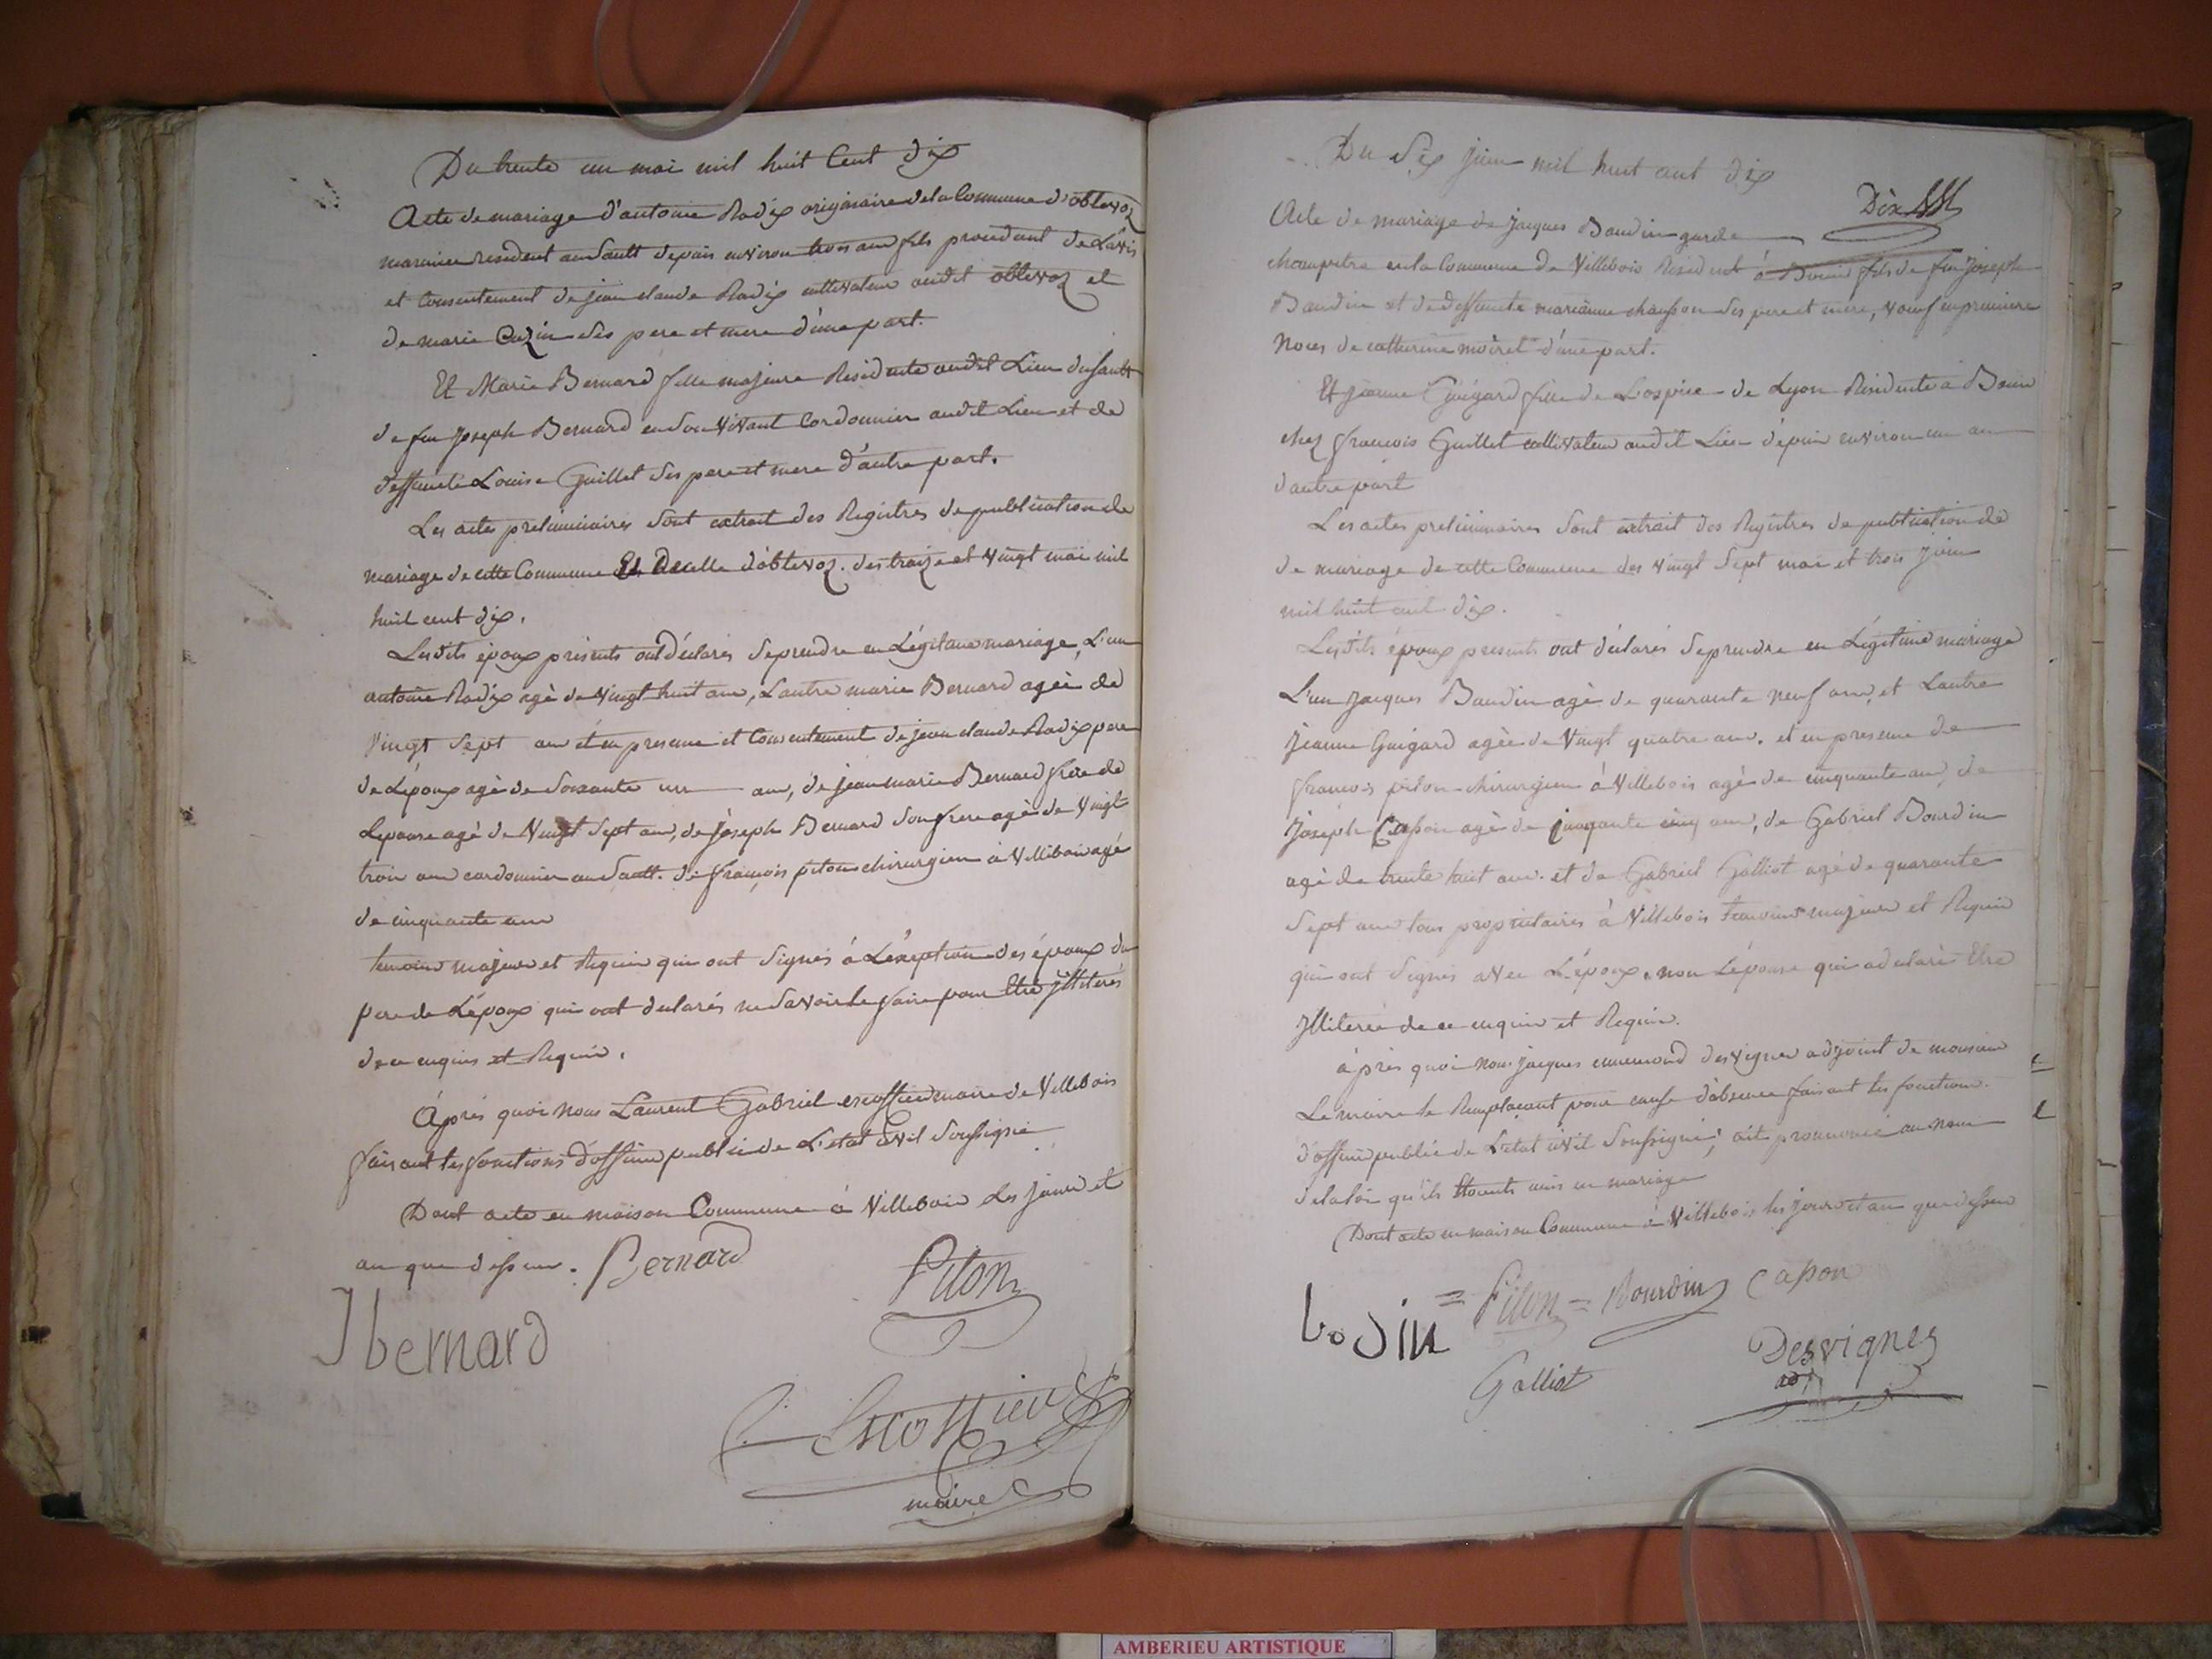 Du trente un mai mil huit Cent dix
Acte de mariage d'antoine Radix originaire de la Commune d'oblevoz
marinier resident au Sault depuis environ trois ans fils procedant de L'avis
et Consentement de jean claude Radix cultivateur audit oblevoz et
de marie Cuzin ses pere et mere d'une part.
Et Marie Bernard fille majeure Residente audit Lieu du sault
de feu Joseph Bernard en son vivant Cordonnier audit Lieu et de
deffunte Louise Guillet ses pere et mere d'autre part.
Les actes preliminaires sont extrait des Registres de publication de
mariage de cette Commune Et De celle d'oblevoz. des traize et vingt mai mil
huit cent dix.
Lesdits époux présents ont déclarés se prendre en Légitime mariage, L'un
antoine Radix agé de vingt huit ans, L'autre marie Bernard agée de
vingt sept ans et en presence et Consentement de jean claude Radix pere
de L'époux agé de soixante un ans, de jean marie Bernard frere de
Lepouse agé de vingt sept ans, de joseph Bernard son frere agé de vingt
trois ans cordonnier au Sault. de françois piton chirurgien à Villebois agé
de cinquante ans
temoins majeurs et Requis qui ont signés à L'exeption des époux du
pere de L'époux qui ont declarés ne savoir le faire pour Etre jlliterés
de ce enquis et Requis.
Après quoi nous Laurent Gabriel escoffier maire de Villebois
faisant les fonctions d'officier public de L'etat Civil soussigné
Dont acte en maison Commune à Villebois les jour et
an que dessus. Bernard
Piton
J bernard
Escoffier
maire
Du six juin mil huit cent dix
Dix
Acte de mariage de jacques Baudin garde
champetre en la Commune de Villebois Resident à Bouis fils de feu Joseph
Baudin et de deffunte marianne chanson ses pere et mere, veuf en premiere
Noces de catherine moiret d'une part.
Et jeanne Guigard fille de L'ospice de Lyon Residente à Bouis
chez françois Guillet cultivateur audit Lieu depuis environ un an
d'autre part
Les actes preliminaires sont extrait des Registres de publication de
de mariage de cette Commune des vingt sept mai et trois juin
mil huit cent dix.
Lesdits époux presents ont declarés se prendre en Légitime mariage
L'un jacques Baudin agé de quarante neuf ans, et L'autre
jeanne Guigard agée de vingt quatre ans. et en presence de
françois piton chirurgien à Villebois agé de cinquante ans, de
joseph Capon agé de cinq ans, de Gabriel Bourdin
agé de trente huit ans. et de Gabriel Galliot agé de quarante
sept ans tous proprietaires à Villebois temoins majeurs et Requis
qui ont signés avec L'époux. non L'épouse qui a declaré Etre
jlliterée de ce enquis et Requis.
après quoi nous jacques ennemond desvignes adjoint de monsieur
Le maire le Remplacant pour cause d'absence faisant les fonctions
d'officier public de L'etat civil soussigné, ait prononcé au nom
de la loi qu'ils etoients unis en mariage
Dont acte en maison Commune à Villebois les jour et an que dessus
bodin = Piton = Bourdin Capon
Galliot
Desvignes
adj
AMBERIEU ARTISTIQUE